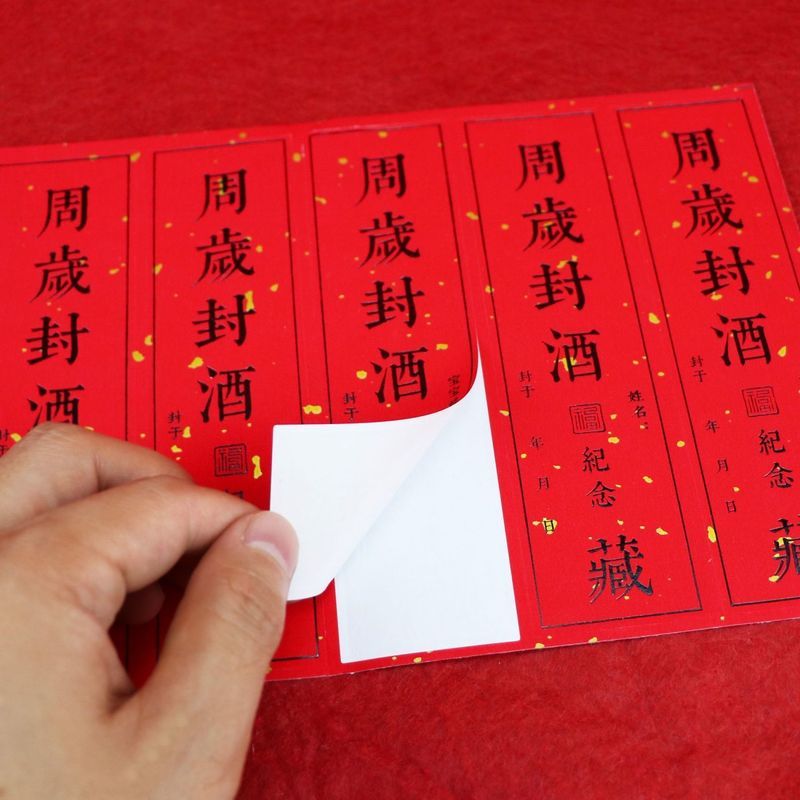 周歲封酒
周歲封酒
封于
福
周歲封酒
封于
周歲封酒
福
紀念
藏
姓名:
封于 年 月 日
周歲封酒
福
紀念
藏
封于 年 月 日